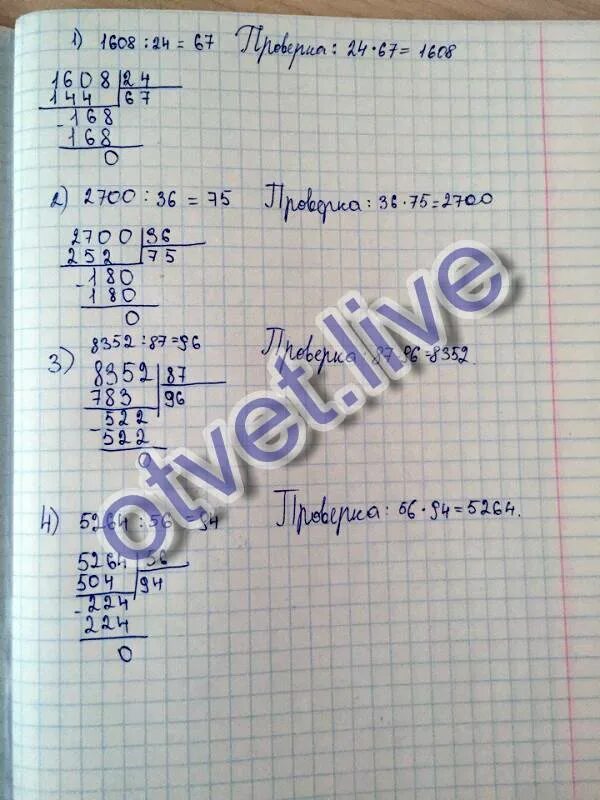 1) 1608 : 24 = 67 Проверка: 24 · 67 = 1608
1608 24
144 67
- 168
168
0
2) 2700 : 36 = 75 Проверка: 36 · 75 = 2700
2700 36
252 75
- 180
180
0
3) 8352 : 87 = 96 Проверка: 87 96 = 8352.
8352 87
783 96
- 522
522
0
4) 5264 : 56 = 94 Проверка: 56 · 94 = 5264.
5264 56
504 94
- 224
224
0
otvet.live